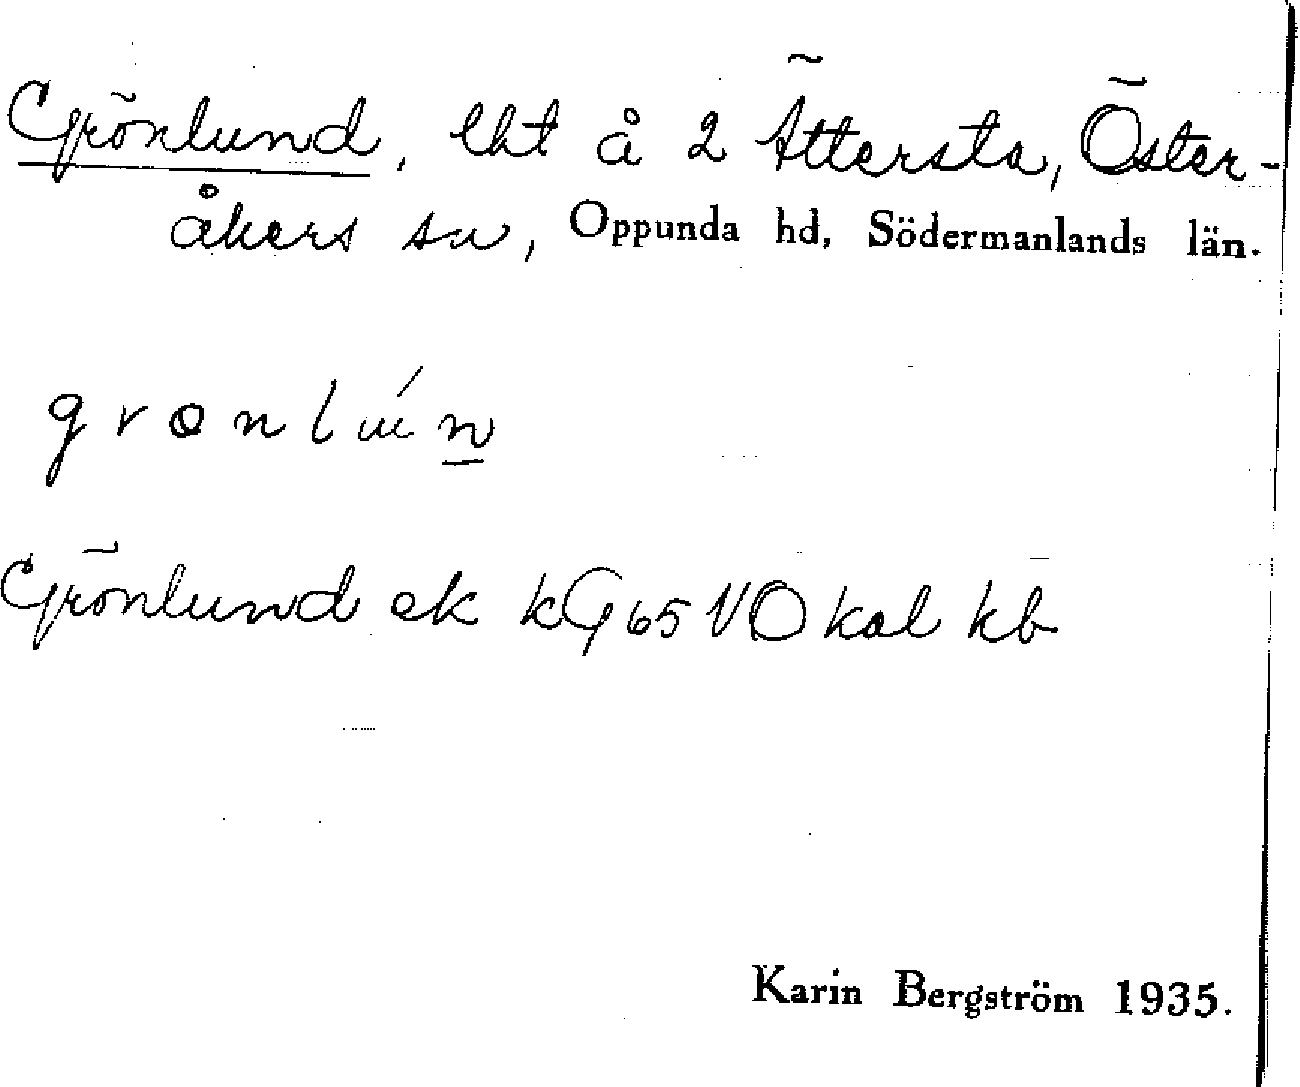 Grönlund, lht å 2 Ättersta, Öster-
åkers sn, Oppunda hd, Södermanlands län.
grɵnlɯ́n
Grönlund ek kG 65 VÖ kal kb
Karin Bergström 1935.